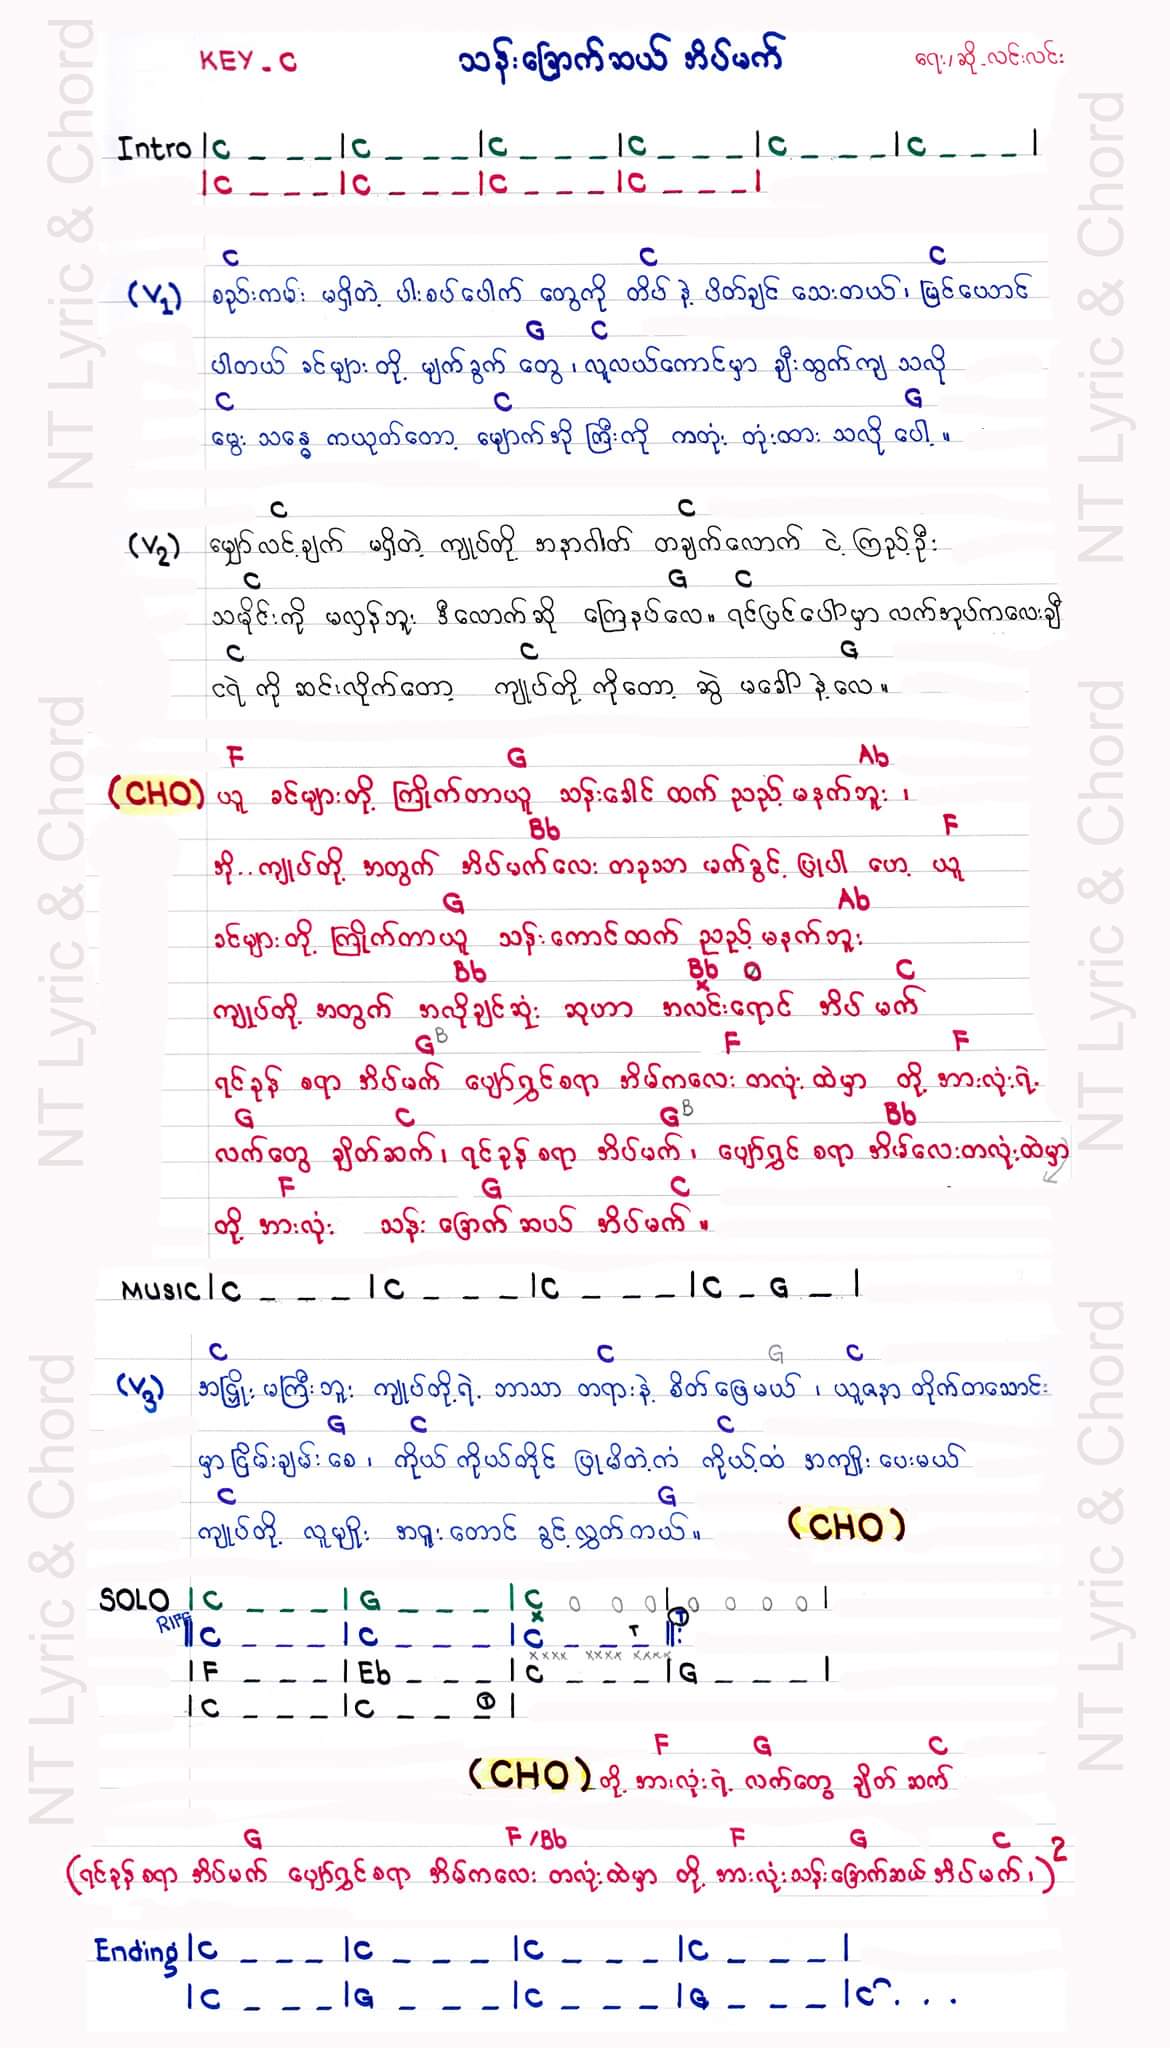 KEY - C သန်းခြောက်ဆယ် အိပ်မက် ရေး/ဆို - လင်းလင်း
Intro |C _ _ _|C _ _ _|C _ _ _|C _ _ _|C _ _ _|C _ _ _|
|C _ _ _|C _ _ _|C _ _ _|C _ _ _|
C C C
(V1) စည်းကမ်း မရှိတဲ့ ပါးစပ်ပေါက် တွေကို တိပ် နဲ့ ပိတ်ချင် သေးတယ်၊ မြင်ယောင်
G C
ပါတယ် ခင်များ တို့ မျက်ခွက် တွေ ၊ လူလယ်ကောင်မှာ ချီးထွက်ကျ သလို
C C G
မွေး သနွေ ကယုတ်တော့ မျောက်အို ကြီးကို ကတုံး တုံးထား သလို ပေါ့ ။
C C
(V2) မျှော်လင့်ချက် မရှိတဲ့ ကျုပ်တို့ အနာဂါတ် တချက်လောက် ငဲ့ ကြည့်ဦး
C G C
သမိုင်းကို မလှန်ဘူး ဒီလောက်ဆို ကြေနပ်လေ ။ ရင်ဖြင်ပေါ်မှာ လက်အုပ်ကလေးချီ
C C G
ငရဲ ကို ဆင်းလိုက်တော့ ကျုပ်တို့ ကိုတော့ ဆွဲ မခေါ် နဲ့ လေ ။
F G Ab
(CHO) ယူ ခင်များတို့ ကြိုက်တာယူ သန်းခေါင် ထက် ညည့် မနက်ဘူး ၊
Bb F
အို .. ကျုပ်တို့ အတွက် အိပ်မက်လေး တခုသာ မက်ခွင့် ပြုပါ ဟေ့ ယူ
G Ab
ခင်များတို့ ကြိုက်တာယူ သန်းကောင်ထက် ညည့် မနက်ဘူး
Bb Bb 0 C
x
ကျုပ်တို့ အတွက် အလိုချင်ဆုံး ဆုဟာ အလင်းရောင် အိပ် မက်
G B F F
ရင်ခုန် စရာ အိပ်မက် ပျော်ရွှင်စရာ အိမ်ကလေး တလုံး ထဲမှာ တို့ အားလုံးရဲ့
G C G B Bb
လက်တွေ ချိတ်ဆက်၊ ရင်ခုန် စရာ အိပ်မက်၊ ပျော်ရွှင် စရာ အိမ်လေးတလုံးထဲမှာ
F G C
တို့ အားလုံး သန်း ခြောက်ဆယ် အိပ်မက် ။
MUSIC |C _ _ _|C _ _ _|C _ _ _|C _ G _|
C C G C
(V3) အငြှိုး မကြီးဘူး ကျုပ်တို့ရဲ့ ဘာသာ တရားနဲ့ စိတ်ဖြေမယ် ၊ ယူဇနာ တိုက်တသောင်း
G C C
မှာ ငြိမ်းချမ်း စေ ၊ ကိုယ် ကိုယ်တိုင် ပြုမိတဲ့ကံ ကိုယ့်ထံ အကျိုး ပေးမယ်
C G
ကျုပ်တို့ လူမျိုး အရူး ထောင် ခွင့်လွှတ်တယ် ။ (CHO)
SOLO |C _ _ _|G _ _ _|C 0 0 0|0 0 0 0|
x
RIFF ||C _ _ _|C _ _ _|C _ _ T _||: T
xxxx xxxx xxxx
|F _ _ _|Eb _ _ _|C _ _ _|G _ _ _|
|C _ _ _|C _ _ T|
F G C
(CHO) တို့ အားလုံးရဲ့ လက်တွေ ချိတ် ဆက်
G F/Bb F G C
(ရင်ခုန် စရာ အိပ်မက် ပျော်ရွှင်စရာ အိမ်ကလေး တလုံးထဲမှာ တို့ အားလုံးသန်းခြောက်ဆယ် အိပ်မက်၊)2
Ending |C _ _ _|C _ _ _|C _ _ _|C _ _ _|
|C _ _ _|G _ _ _|C _ _ _|G _ _ _|C . . .
NT Lyric & Chord
NT Lyric & Chord
NT Lyric & Chord
NT Lyric & Chord
NT Lyric & Chord
NT Lyric & Chord